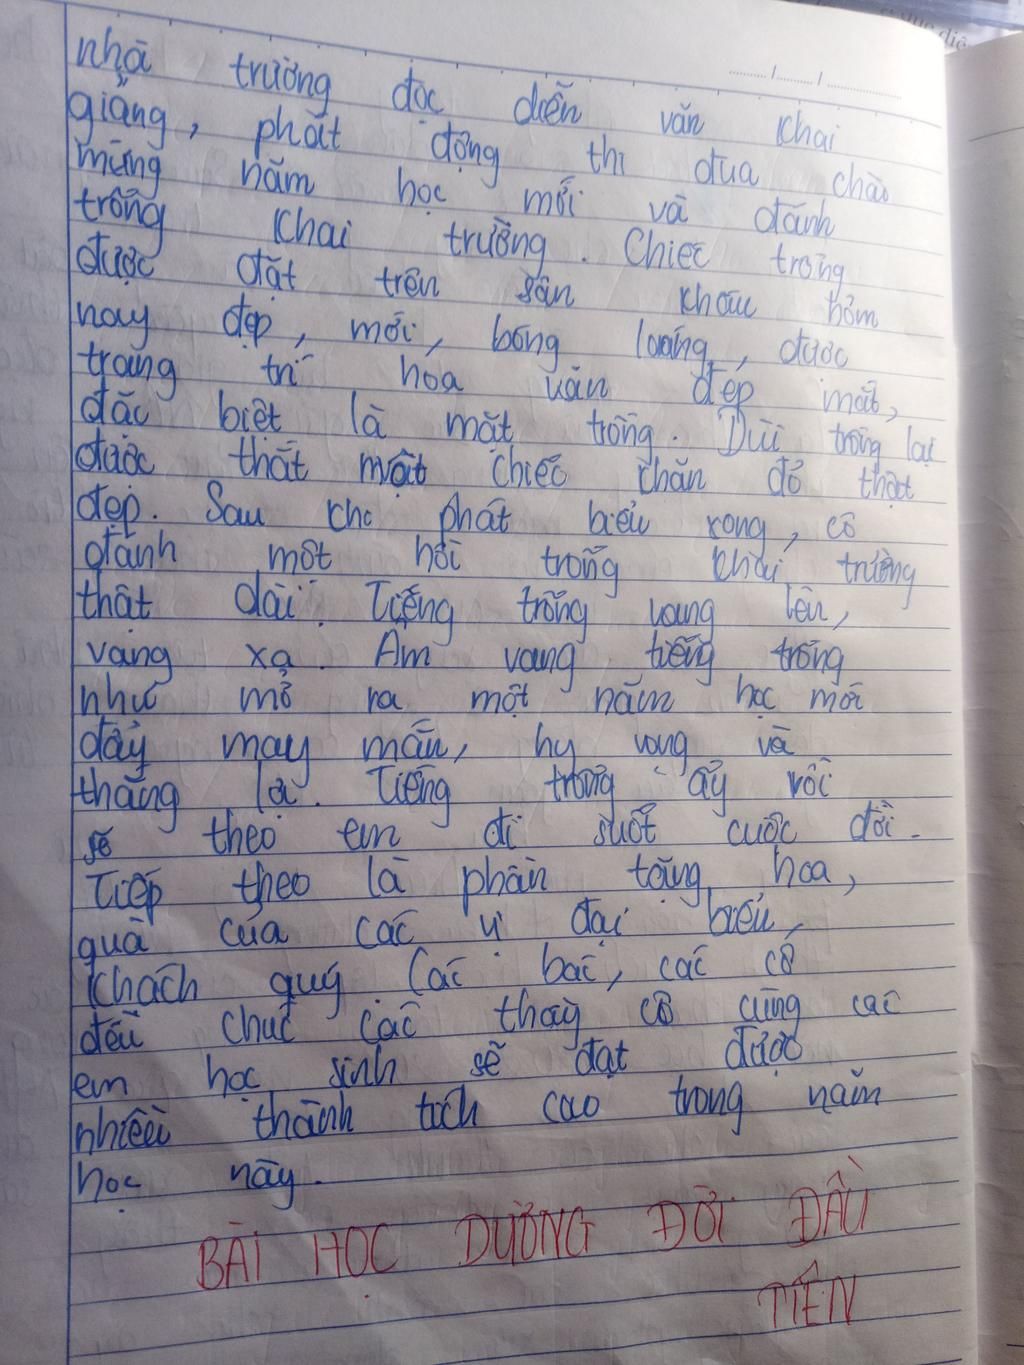 nhà trường đọc diễn văn khai
giảng, phát động thi đua chào
mừng năm học mới và đánh
trống khai trường. Chiếc trống
được đặt trên sân khấu hôm
nay đẹp, mới, bóng loáng, được
trang trí hoa văn đẹp mắt,
đặc biệt là mặt trống. Dùi trống lại
được thắt một chiếc khăn đỏ thật
đẹp. Sau khi phát biểu xong, cô
đánh một hồi trống khai trường
thật dài. Tiếng trống vang lên,
vang xa. Âm vang tiếng trống
như mở ra một năm học mới
đầy may mắn, hy vọng và
thắng lợi. Tiếng trống ấy rồi
sẽ theo em đi suốt cuộc đời.
Tiếp theo là phần tặng hoa,
quà của các vị đại biểu,
khách quý. Các bác, các cô
đều chúc các thầy cô cùng các
em học sinh sẽ đạt được
nhiều thành tích cao trong năm
học này.
BÀI HỌC ĐƯỜNG ĐỜI ĐẦU
TIÊN